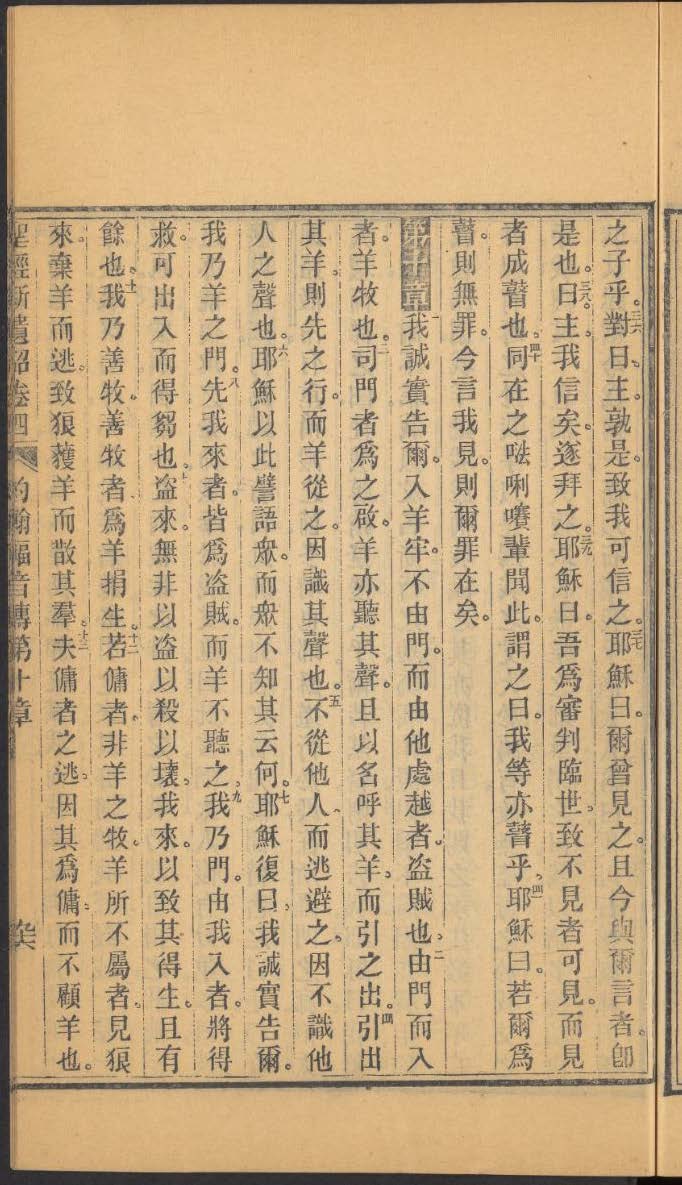 之子乎。三六對曰。主。孰是。致我可信之。三七耶穌曰。爾曾見之。且今與爾言者。卽
是也。三八曰。主。我信矣。遂拜之。三九耶穌曰。吾爲審判臨世。致不見者可見。而見
者成瞽也。四十同在之𠵽唎㘔輩聞此。謂之曰。我等亦瞽乎。四一耶穌曰。若爾爲
瞽則無罪。今言我見。則爾罪在矣。
第十章一我誠實告爾。入羊牢。不由門。而由他處越者。盗賊也。二由門而入
者。羊牧也。三司門者爲之啟。羊亦聽其聲。且以名呼其羊。而引之出。四引出
其羊。則先之行。而羊從之。因識其聲也。五不從他人。而逃避之。因不識他
人之聲也。六耶穌以此譬語衆。而衆不知其云何。七耶穌復曰。我誠實告爾。
我乃羊之門。八先我來者。皆爲盗賊。而羊不聽之。九我乃門。由我入者。將得
救。可出入而得芻也。十盗來。無非以盗以殺以壞。我來。以致其得生。且有
餘也。十一我乃善牧。善牧者爲羊捐生。十二若傭者。非羊之牧。羊所不屬者。見狼
來。棄羊而逃。致狼獲羊而散其羣。十三夫傭者之逃。因其爲傭。而不顧羊也。
聖經新遺詔卷四 約翰福音傳第十章